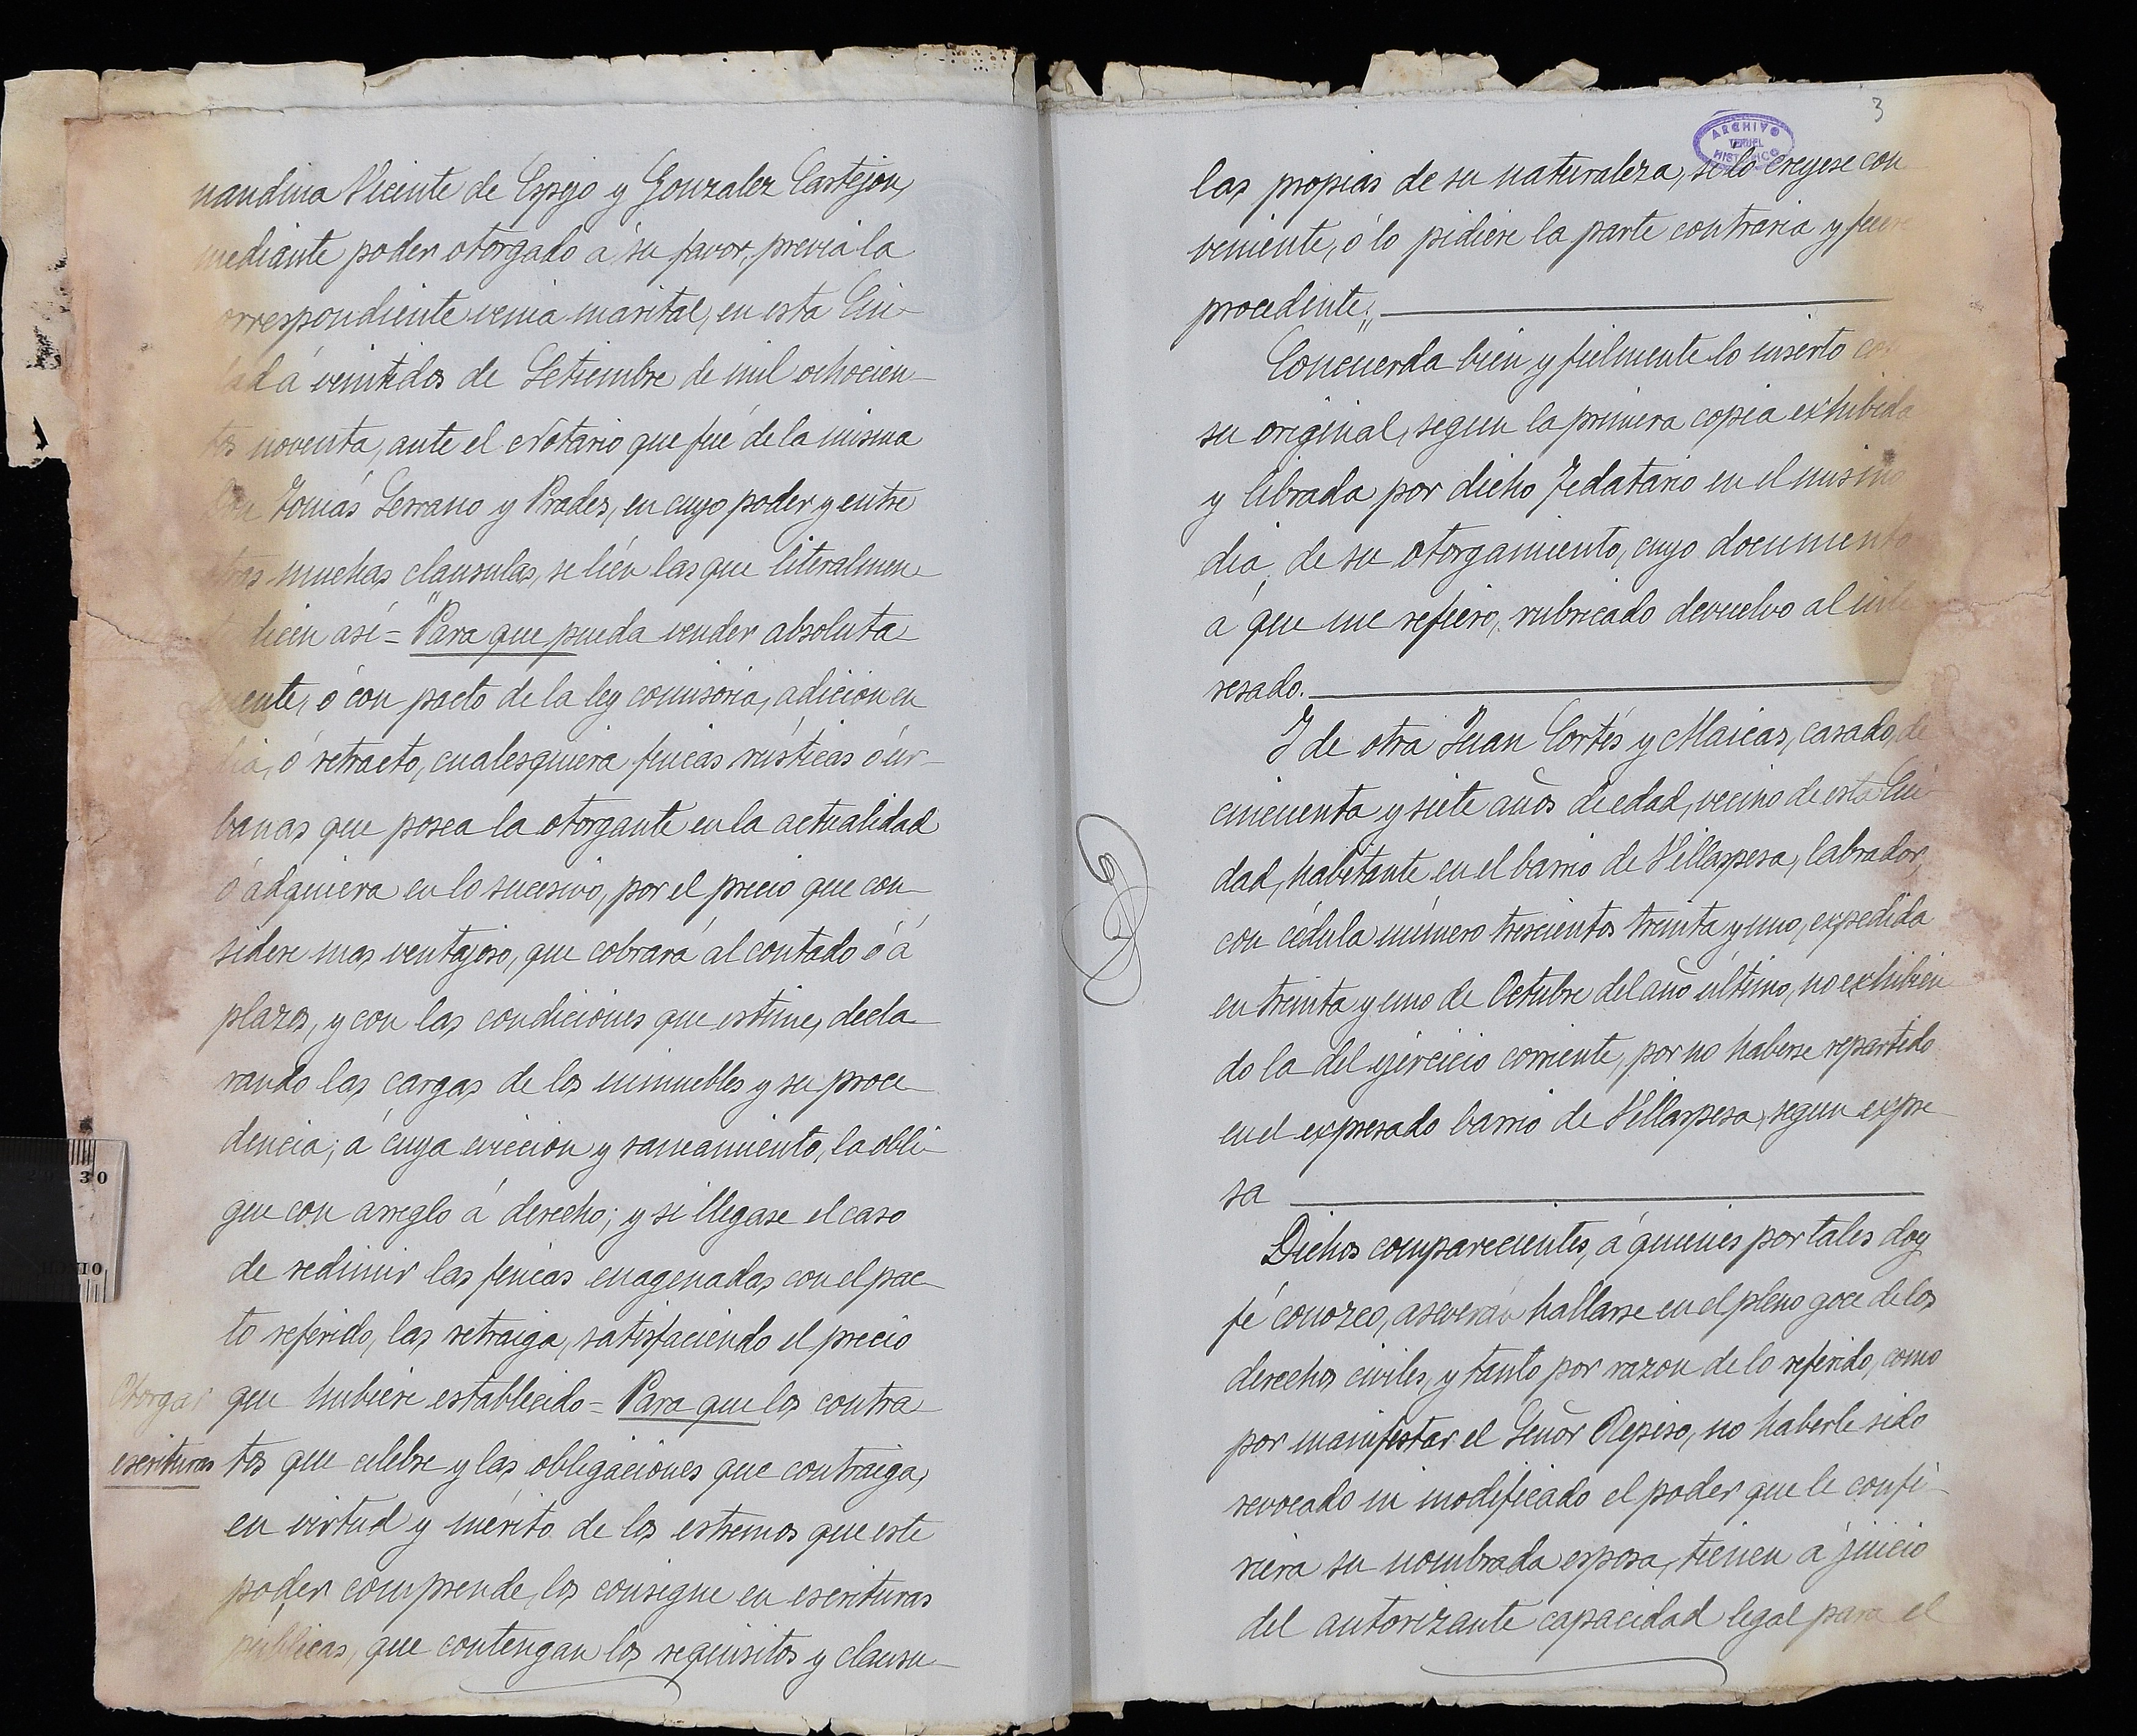 nandina Vicente de Espejo y Gonzalez Castejon,
mediante poder otorgado á su favor, previa la
orrespondiente venia marital, en esta Ciu-
dad á veintidos de Setiembre de mil ochocien-
tos noventa, ante el Notario que fué de la misma
Don Tomás Serrano y Prades, en cuyo poder y entre
otras muchas clausulas, se léen las que literalmen-
dicen asi = "Para que pueda vender absoluta-
mente, ó con pacto de la ley comisoria, adicion en
dia, ó retracto, cualesquiera fincas rústicas ó ur-
banas que posea la otorgante en la actualidad
ó adquiera en lo sucesivo, por el precio que con-
sidere mas ventajoso, que cobrará al contado ó á
plazos, y con las condiciones que estime, decla-
rando las cargas de los inmuebles y su proce-
dencia; á cuya eviccion y saneamiento, la obli-
gue con arreglo á derecho; y si llegase el caso
de redimir las fincas enagenadas con el pac-
to referido, las retraiga, satisfaciendo el precio
Otorgar que hubiere establecido = Para que los contra-
escrituras tos que celebre y las obligaciones que contraiga,
en virtud y mérito de los estremos que este
poder comprende, los consigne en escrituras
públicas, que contengan los requisitos y clausu-
3
ARCHIVO
TERUEL
HISTORICO
las propias de su naturaleza, si lo creyese con-
veniente, ó lo pidiere la parte contraria y fuere
procedente."
Concuerda bien y fielmente lo inserto con
su original, segun la primera copia exhibida
y librada por dicho Fedatario en el mismo
dia de su otorgamiento, cuyo documento
á que me refiero, rubricado devuelvo al inte-
resado.
Y de otra Juan Cortés y Maicas, casado, de
cincuenta y siete años de edad, vecino de esta Ciu-
dad, habitante en el barrio de Villaspesa, labrador,
con cédula número trescientos treinta y uno, expedida
en treinta y uno de Octubre del año último, no exhibien-
do la del ejercicio corriente, por no haberse repartido
en el expresado barrio de Villaspesa, segun expre-
sa
Dichos comparecientes, á quienes por tales doy
fé conozco, aseveran hallarse en el pleno goce de los
derechos civiles, y tanto por razon de lo referido, como
por manifestar el Señor Repiso, no haberle sido
revocado ni modificado el poder que le confi-
riera su nombrada esposa, tienen á juicio
del autorizante capacidad legal para el